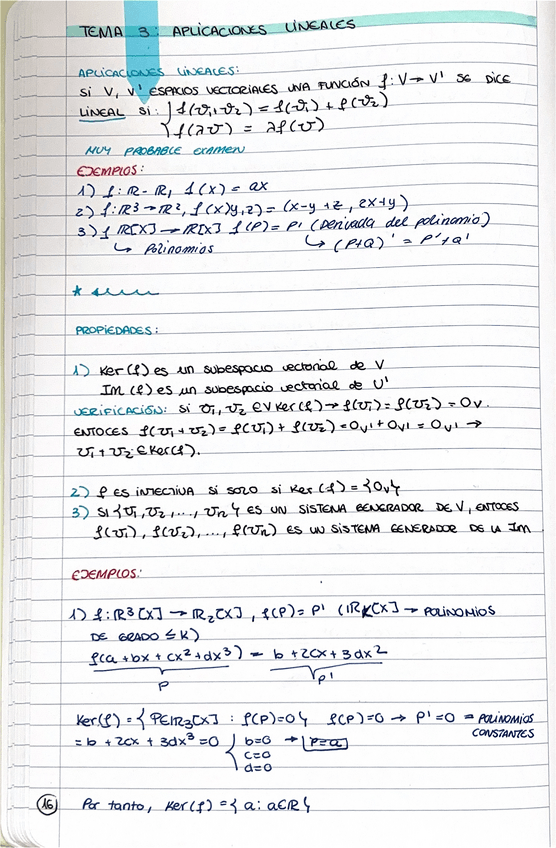 TEMA 3: APLICACIONES LINEALES
APLICACIONES LINEALES:
SI V, V' ESPACIOS VECTORIALES UNA FUNCIÓN f: V → V' SE DICE
LINEAL SI: { f(v₁+v₂) = f(v₁) + f(v₂)
f(λv) = λf(v)
MUY PROBABLE EXAMEN
EJEMPLOS:
1) f: R - R, f(x) = ax
2) f: R3 → R², f(x,y,z) = (x-y+z, 2x+y)
3) f R[X] → R[X] f(P) = P' (Derivada del polinomio)
↳ Polinomios ↳ (P+Q)' = P'+Q'
*
PROPIEDADES:
1) Ker(f) es un subespacio vectorial de V
IM (f) es un subespacio vectorial de U'
VERIFICACIÓN: Si v₁, v₂ ∈ V Ker(f) → f(v₁) = f(v₂) = 0v.
ENTOCES f(v₁+v₂) = f(v₁) + f(v₂) = 0v' + 0v' = 0v' →
v₁+v₂ ∈ Ker(f).
2) f ES INYECTIVA SI SOLO SI Ker(f) = {0v}
3) SI {v₁, v₂, ..., vn} ES UN SISTEMA GENERADOR DE V, ENTOCES
f(v₁), f(v₂), ..., f(vn) ES UN SISTEMA GENERADOR DE LA IM
EJEMPLOS:
1) f: R3[X] → R₂[X], f(P) = P' (RK[X] → POLINOMIOS
DE GRADO ≤ K)
f(a+bx+cx²+dx³) = b+2cx+3dx²
P P'
Ker(f) = {P∈R3[X] : f(P)=0} f(P)=0 → P'=0 = POLINOMIOS
CONSTANTES
= b + 2cx + 3dx³ = 0 { b=0 → P=a
c=0
d=0
16 Por tanto, Ker(f) = {a: a∈R}